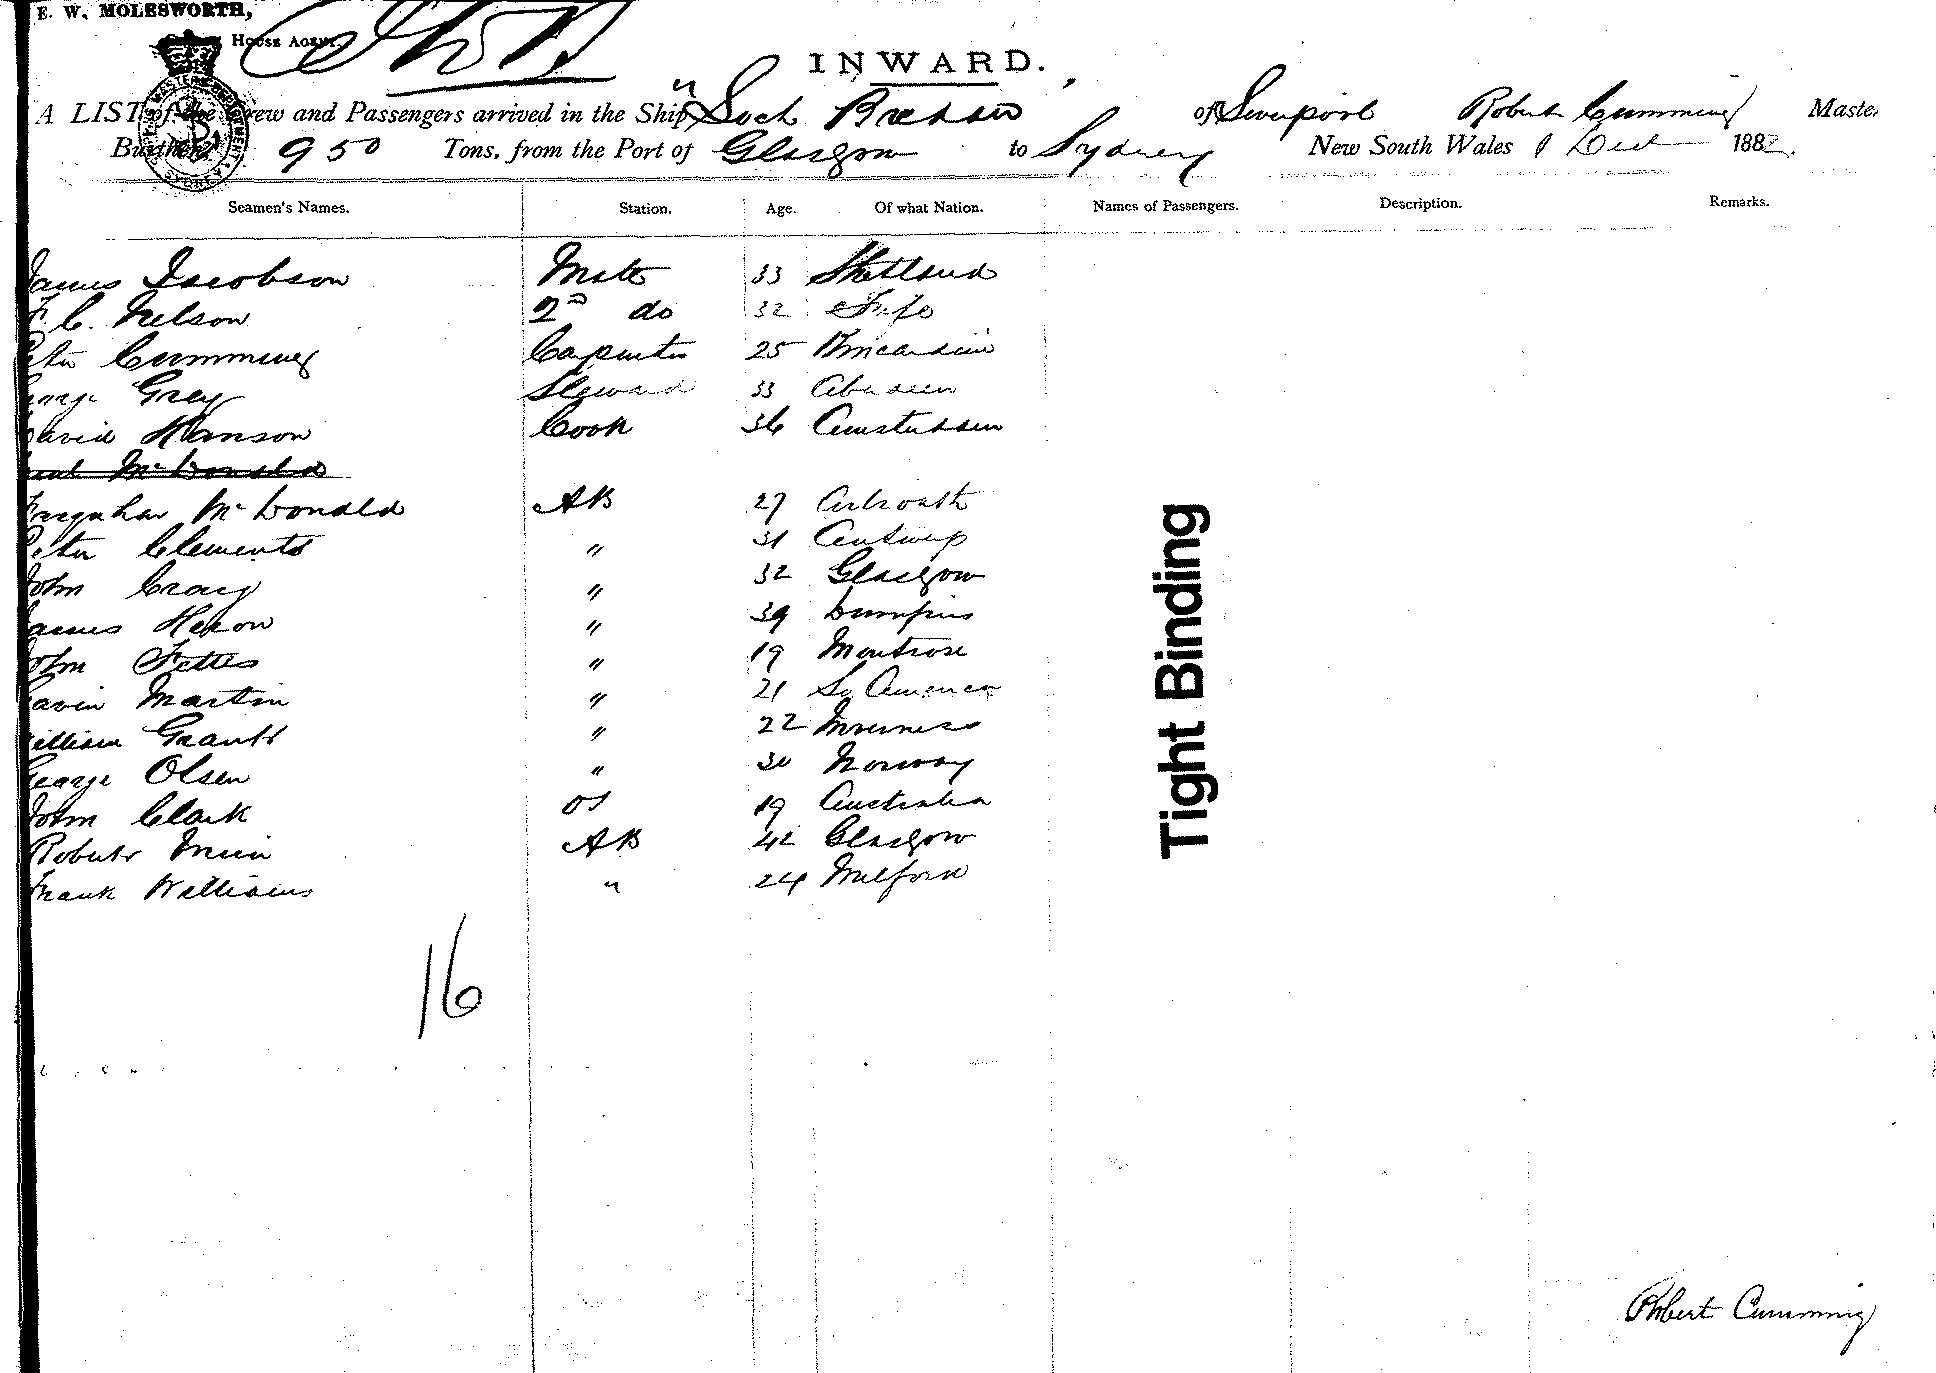 E. W. MOLESWORTH,
House Agent.
INWARD.
A LIST of the Crew and Passengers arrived in the Ship "Loch Bredan" of Liverpool Robert Cumming Master
Burthen 950 Tons, from the Port of Glasgow to Sydney New South Wales 1 Dect 1882.
Seamen's Names. Station. Age. Of what Nation. Names of Passengers. Description. Remarks.
James Jacobson Mate 33 Shetland
F. C. Nelson 2nd do 32 Fife
Peter Cumming Carpenter 25 Kincardine
George Grey Steward 33 Aberdeen
David Hanson Cook 36 Amsterdam
McDonald
Farquhar McDonald AB 27 Arbroath
Peter Clements " 31 Antwerp
John Craig " 32 Glasgow
James Heron " 39 Dumfries
John Fettes " 19 Montrose
Gavin Martin " 21 So America
William Grant " 22 Inverness
George Olsen " 30 Norway
John Clark OS 19 Australia
Robert AB 42 Glasgow
Frank Williams " 24 Milford
16
Tight Binding
Robert Cumming